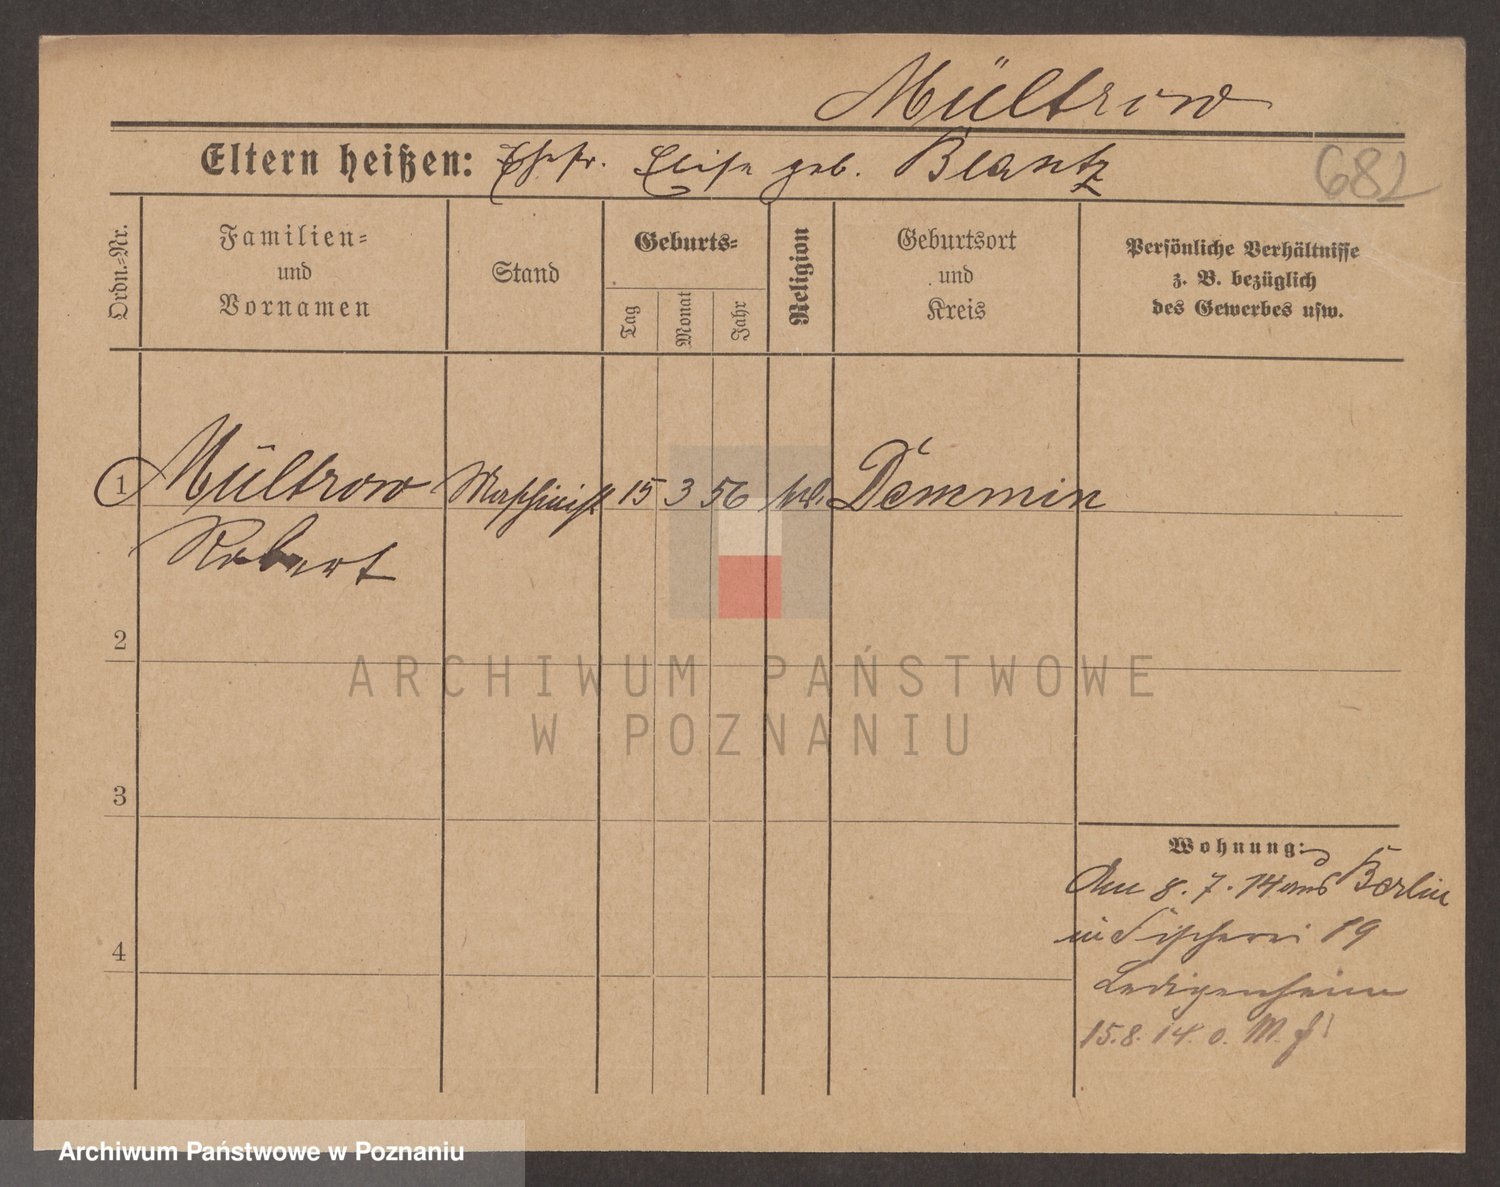 Mültrow
Eltern heißen: Ehefr. Elise geb. Blantz
682
Ordn.-Nr.
Familien-
und
Vornamen
Stand
Geburts-
Tag
Monat
Jahr
Religion
Geburtsort
und
Kreis
Persönliche Verhältnisse
z. B. bezüglich
des Gewerbes usw.
1 Mültrow Maschinist 15 3 56 Demmin
Robert
2
3
4
Wohnung:
Am 8.7.14 aus Berlin
in Fischerei 19
Ledigenheim
15.8.14. o. M.
ARCHIWUM PAŃSTWOWE
W POZNANIU
Archiwum Państwowe w Poznaniu